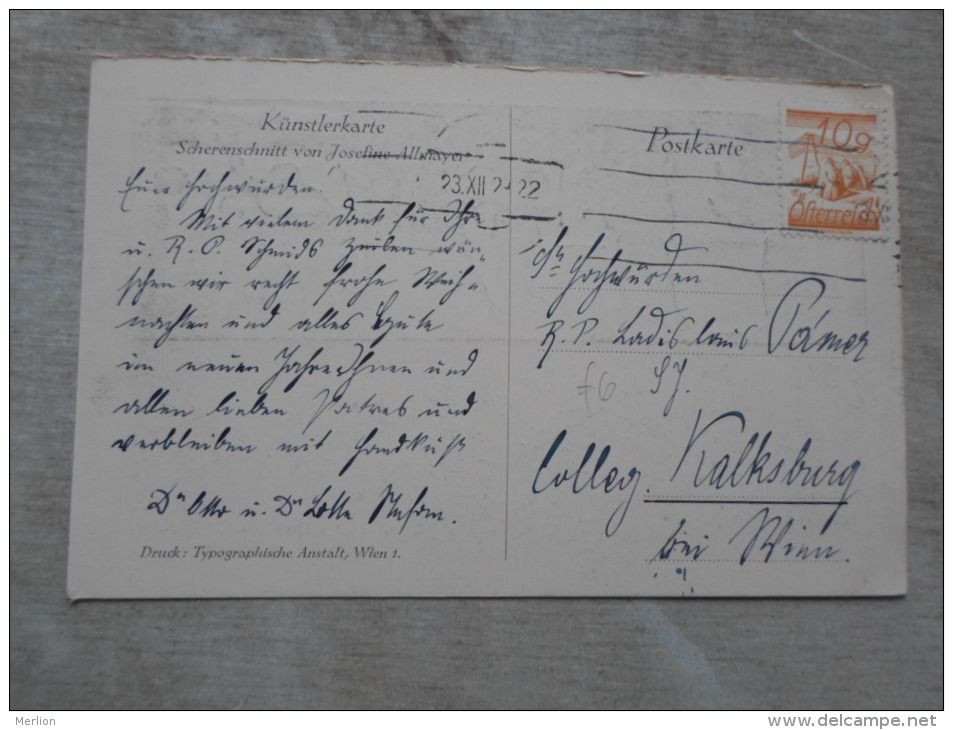 Künstlerkarte
Scherenschnitt von Josefine Allmayer
Postkarte
10g
Österreich
23.XII 22
Euer Hochwürden!
Mit vielem Dank für Ihre
u. R. P. Schmids Zeilen wün-
schen wir recht frohe Weih-
nachten und alles Gute
im neuen Jahre Ihnen und
allen lieben Patres und
verbleiben mit Handkuß
Dr Otto u. Dr Lotte
Druck: Typographische Anstalt, Wien 1.
Hochwürden
R. P. Ladislaus Pámer
S J.
Colleg. Kalksburg
bei Wien.
Merlion
delcampe.net